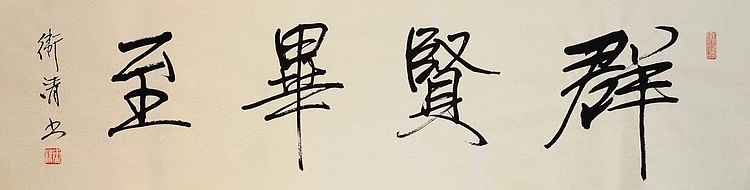 群賢畢至
衛清书